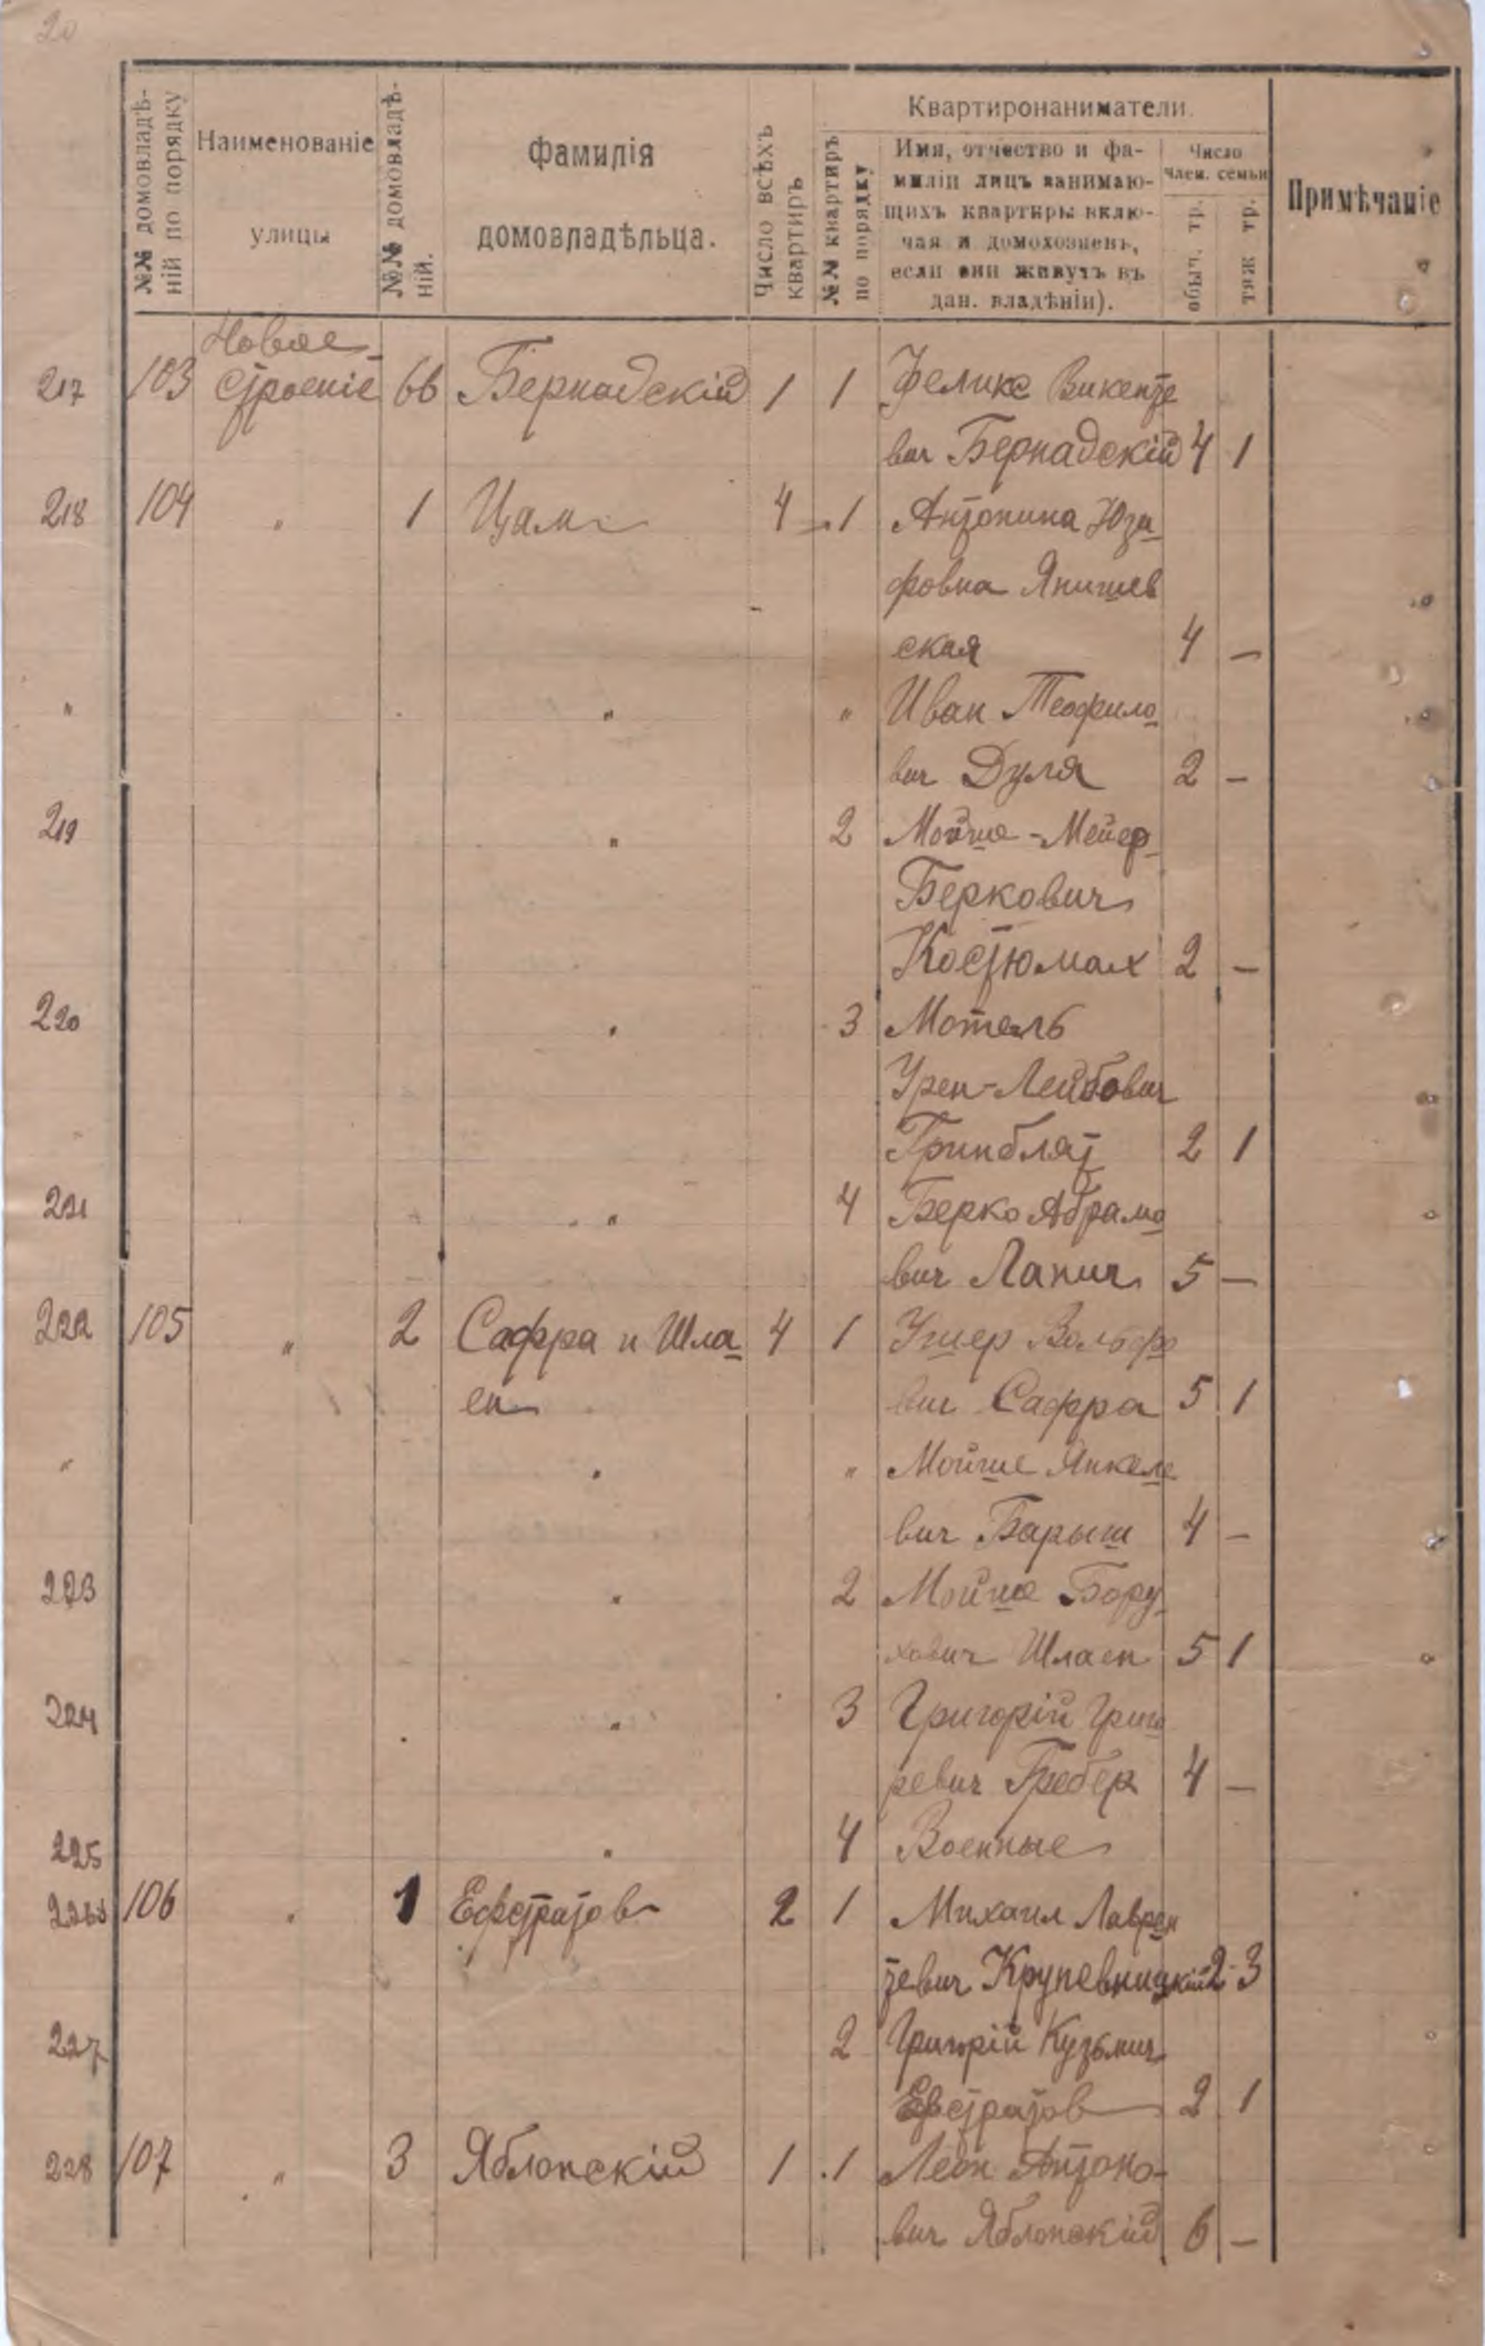 20
№№ домовладѣ-
ній по порядку
Наименованіе
улицы
№№ домовладѣ-
ній.
фамилія
домовладѣльца.
Число всѣхъ
квартиръ
Квартиронаниматели.
№№ квартиръ
по порядку
Имя, отчество и фа-
миліи лицъ занимаю-
щихъ квартиры вклю-
чая и домохозяевъ,
если они живутъ въ
дан. владѣніи).
Число
член. семьи
обыч. тр.
тяж тр.
Примѣчаніе
Новое
217 103 строеніе 6в Бернадскій 1 1 Феликс Викенте
вич Бернадскій 4 1
218 104 " 1 Цам 4 1 Антонина Юзе
фовна Янишев
ская 4 —
" " " Иван Теофило
вич Дуля 2 —
219 " 2 Мойше-Мейер
Беркович
Костюмах 2 —
220 " 3 Мотель
Урен-Лейбович
Гринблят 2 1
221 " 4 Берко Абрамо
вич Лапич 5 —
222 105 " 2 Сафра и Шла 4 1 Ушер Вольфо
ен вич Сафра 5 1
" " " Мойше Янкеле
вич Барыш 4 —
223 " 2 Мойше Бору
хович Шлаен 5 1
224 " 3 Григорій Григо
ревич Гребер 4 —
225 " 4 Военные
226 106 " 1 Ефстратов 2 1 Михаил Лаврен
тевич Крупевницкій 2 3
227 2 Григорій Кузьмич
Ефстратов 2 1
228 107 " 3 Яблонскій 1 1 Леон Антоно-
вич Яблонскій 6 —